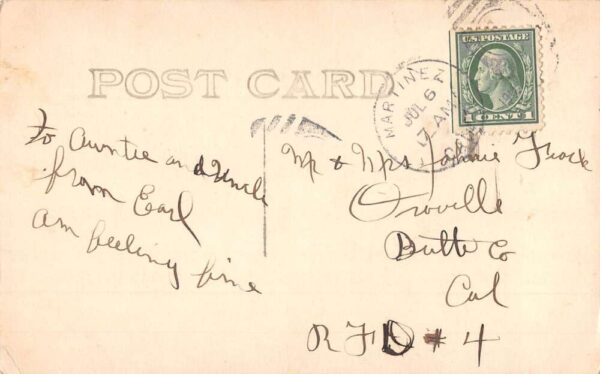 POST CARD
U.S. POSTAGE
1 CENT 1
MARTINEZ
JUL 6
AM
CAL
To Auntie and Uncle
from Earl
am feeling fine
Mr & Mrs
Oroville
Butte Co
Cal
RFD # 4